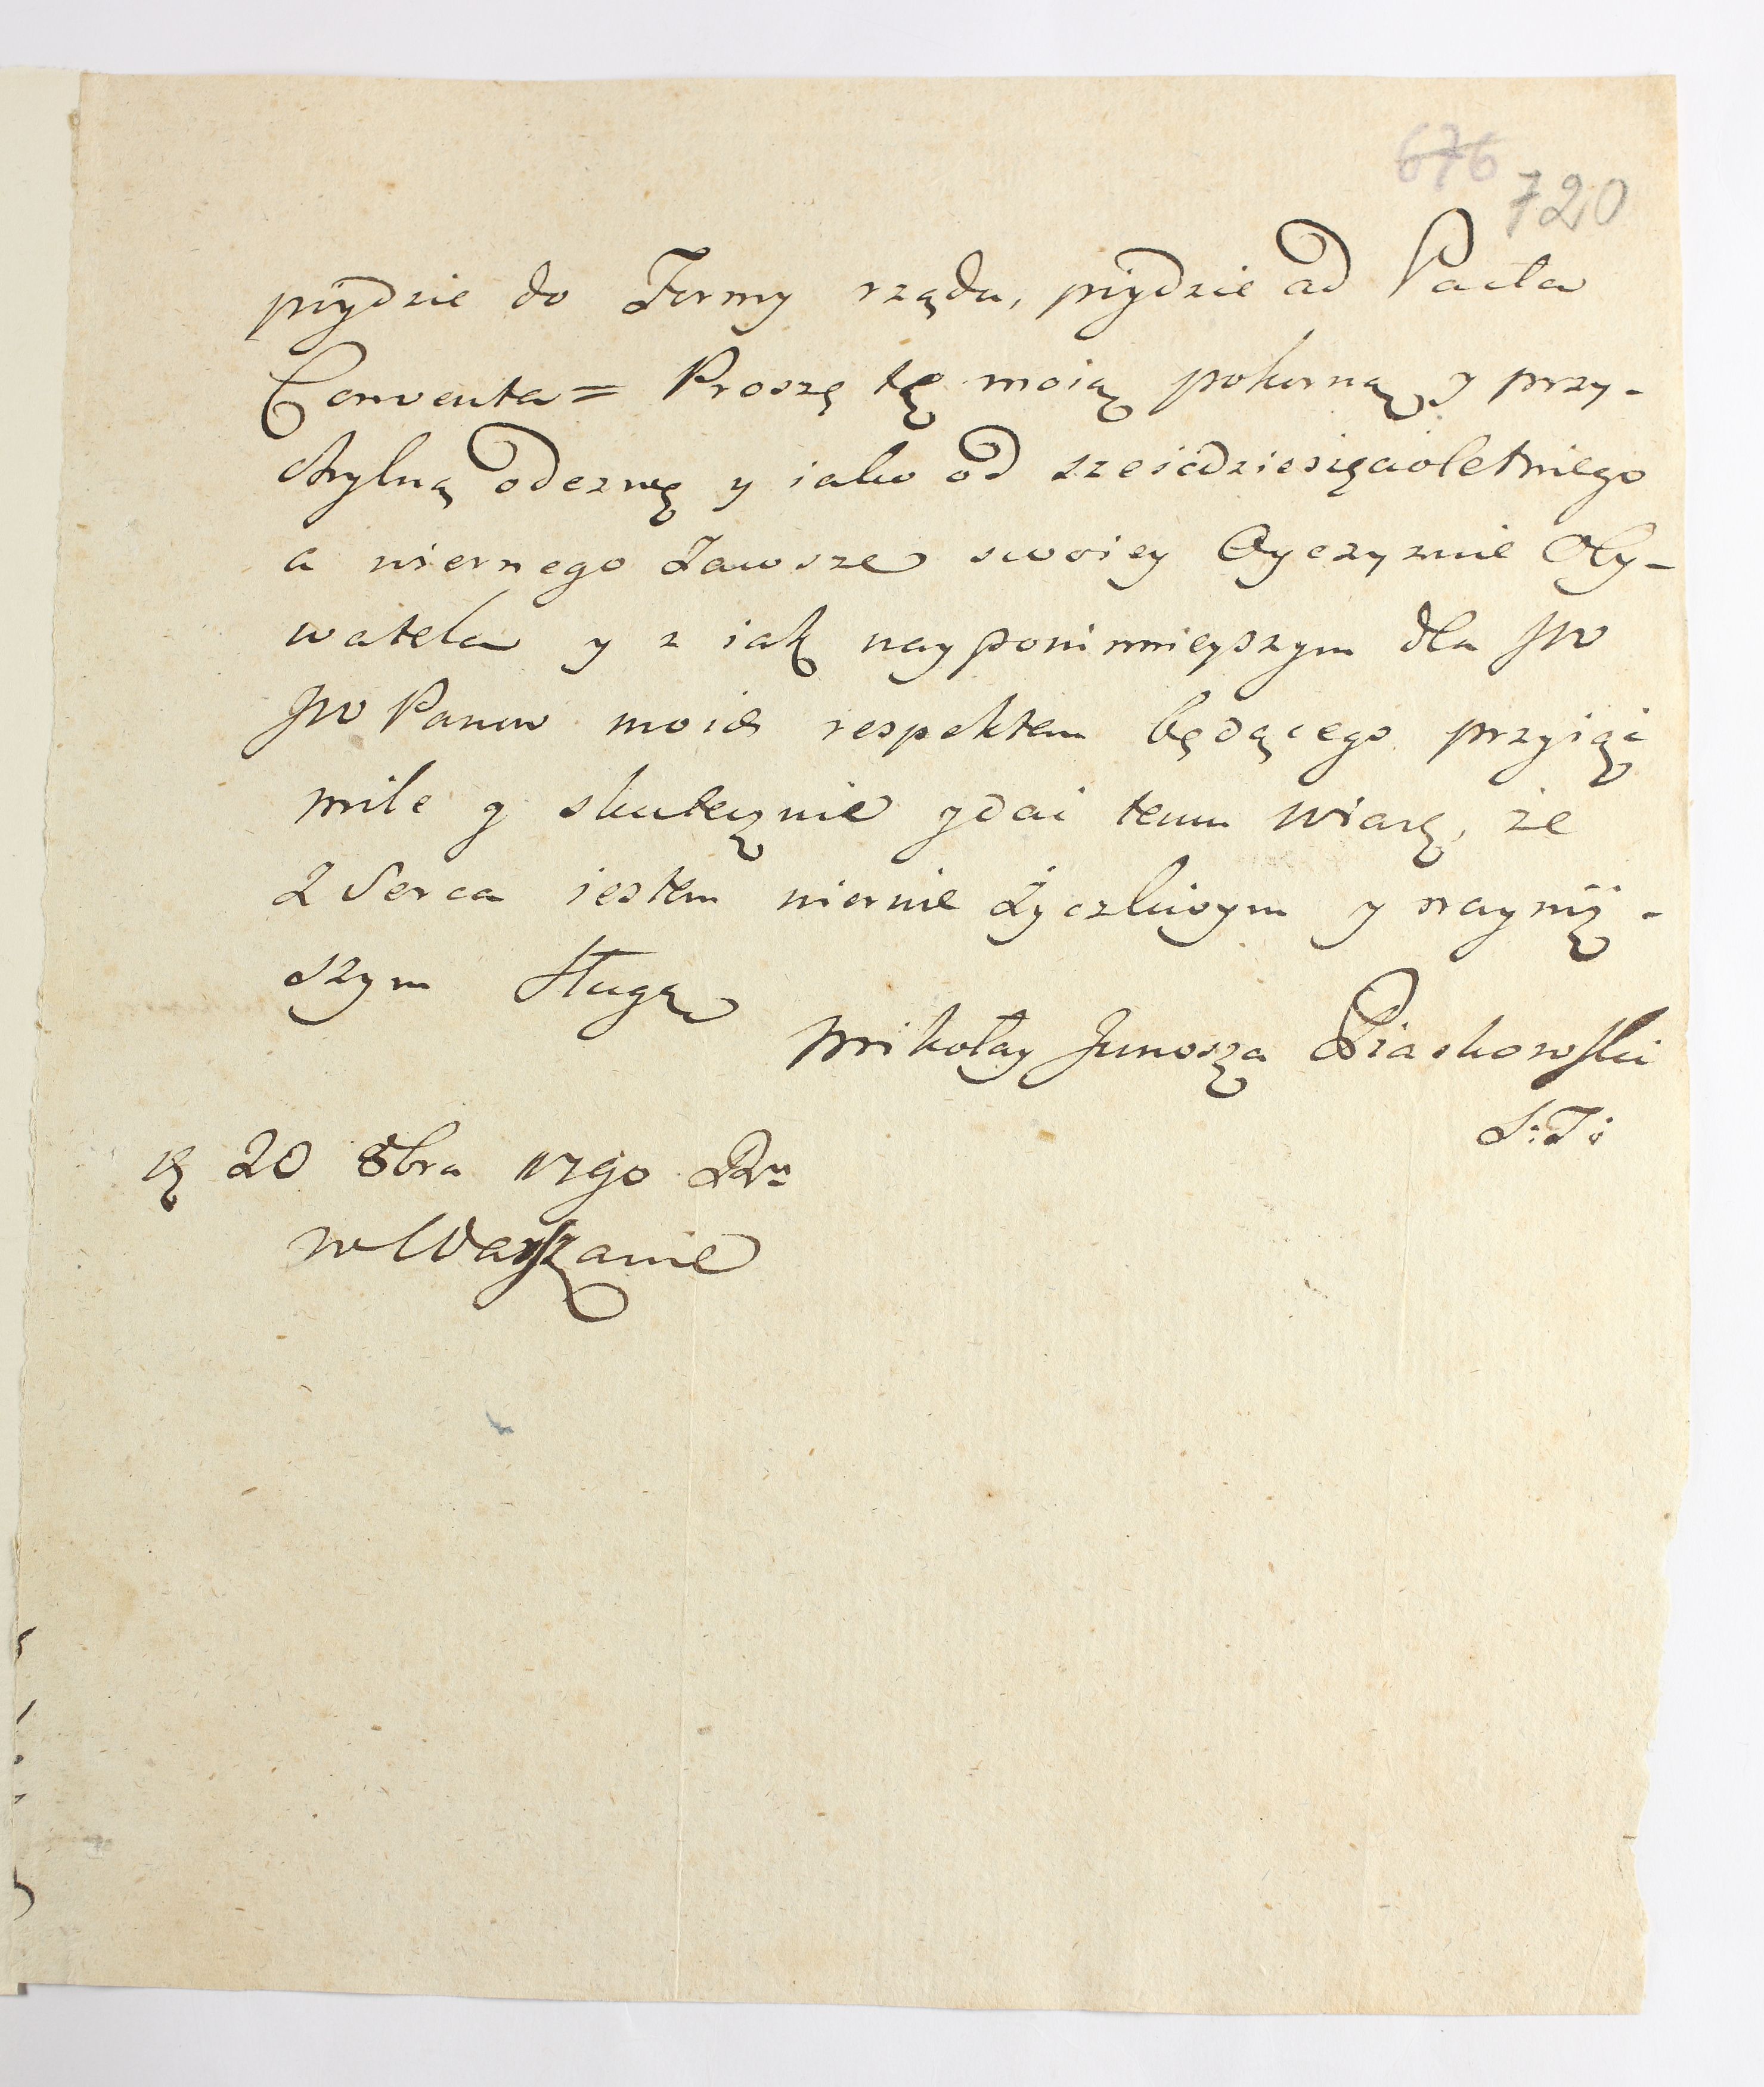 676
720
pôydzie do Formy rządu, pôydzie ad Pacta
Conventa = Proszę tę moią pokorną y przy-
chylną odezwę y iako od sześćdziesięcioletniego
a wiernego Zawsze swoiey Oyczyznie Oby-
watela y z iak naypowinnieyszym dla JW
JW Panow moich respektem będącego przyiąć
mile y skutecznie y dać temu wiarę, że
Z Serca iestem wiernie Życzliwym y nayniż-
szym Sługą
Mikołay Junosza Piaskowski
D 20 8bra 1790 Ru
w Warszawie